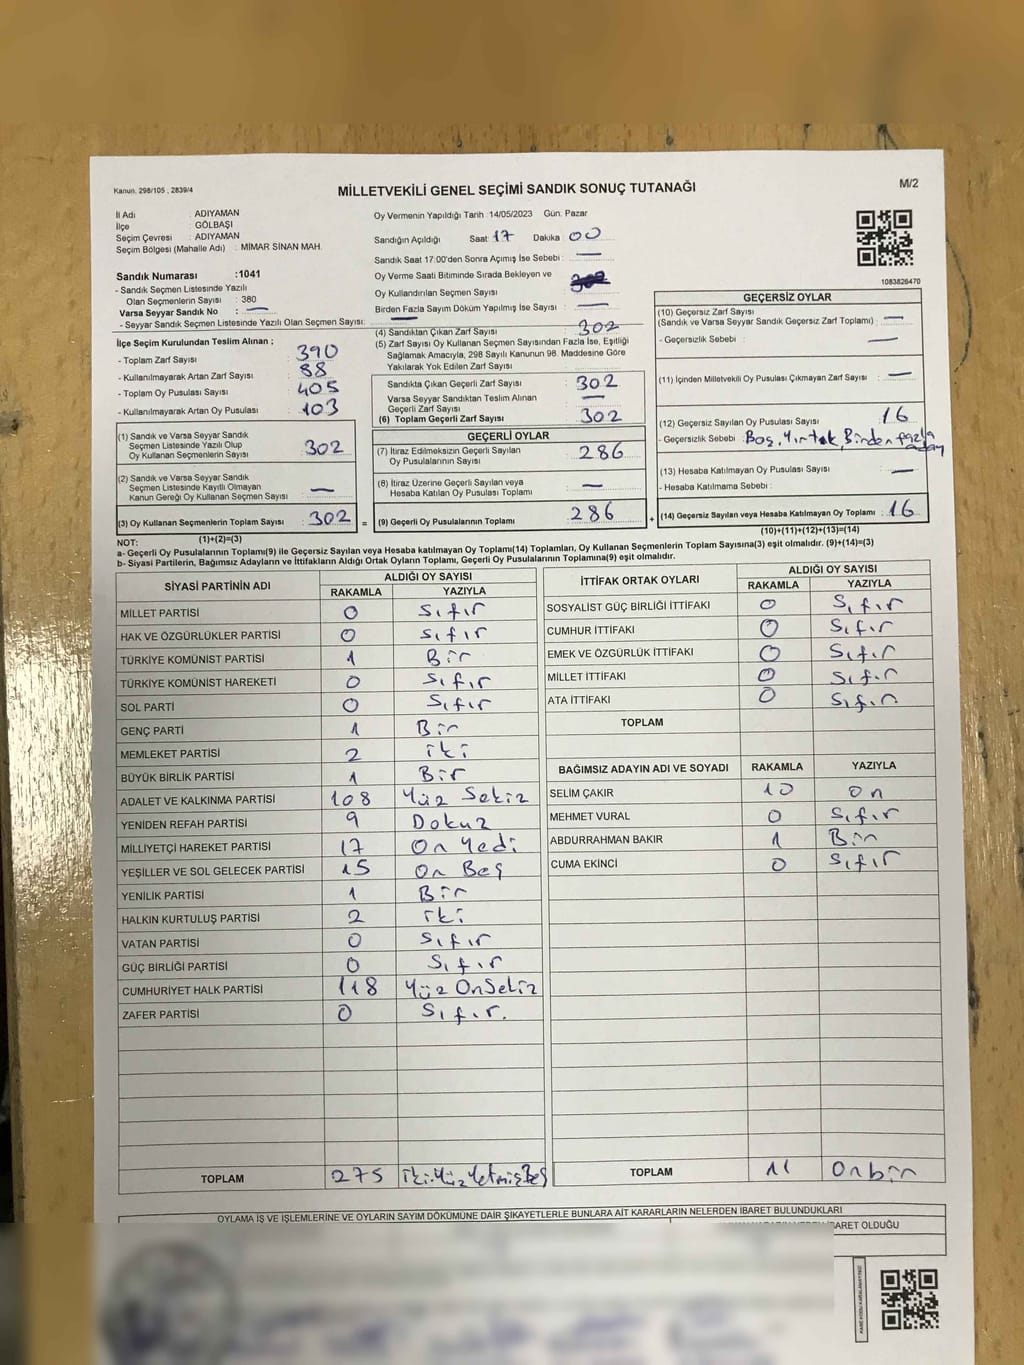 Kanun. 298/105 , 2839/4
MİLLETVEKİLİ GENEL SEÇİMİ SANDIK SONUÇ TUTANAĞI
M/2
İl Adı : ADIYAMAN
İlçe : GÖLBAŞI
Seçim Çevresi : ADIYAMAN
Seçim Bölgesi (Mahalle Adı) : MİMAR SİNAN MAH.
Sandık Numarası :1041
- Sandık Seçmen Listesinde Yazılı
Olan Seçmenlerin Sayısı : 380
Varsa Seyyar Sandık No : —
- Seyyar Sandık Seçmen Listesinde Yazılı Olan Seçmen Sayısı: —
İlçe Seçim Kurulundan Teslim Alınan ;
- Toplam Zarf Sayısı : 390
- Kullanılmayarak Artan Zarf Sayısı : 88
- Toplam Oy Pusulası Sayısı : 405
- Kullanılmayarak Artan Oy Pusulası : 103
(1) Sandık ve Varsa Seyyar Sandık
Seçmen Listesinde Yazılı Olup
Oy Kullanan Seçmenlerin Sayısı : 302
(2) Sandık ve Varsa Seyyar Sandık
Seçmen Listesinde Kayıtlı Olmayan
Kanun Gereği Oy Kullanan Seçmen Sayısı : —
(3) Oy Kullanan Seçmenlerin Toplam Sayısı : 302 =
(1)+(2)=(3)
Oy Vermenin Yapıldığı Tarih :14/05/2023 Gün. Pazar
Sandığın Açıldığı Saat: 17 Dakika : 00
Sandık Saat 17:00'den Sonra Açımış İse Sebebi : —
Oy Verme Saati Bitiminde Sırada Bekleyen ve
Oy Kullandırılan Seçmen Sayısı :
Birden Fazla Sayım Döküm Yapılmış İse Sayısı : —
(4) Sandıktan Çıkan Zarf Sayısı : 302
(5) Zarf Sayısı Oy Kullanan Seçmen Sayısından Fazla İse, Eşitliği
Sağlamak Amacıyla, 298 Sayılı Kanunun 98. Maddesine Göre
Yakılarak Yok Edilen Zarf Sayısı :
Sandıkta Çıkan Geçerli Zarf Sayısı : 302
Varsa Seyyar Sandıktan Teslim Alınan
Geçerli Zarf Sayısı : —
(6) Toplam Geçerli Zarf Sayısı : 302
GEÇERLİ OYLAR
(7) İtiraz Edilmeksizin Geçerli Sayılan
Oy Pusulalarının Sayısı : 286
(8) İtiraz Üzerine Geçerli Sayılan veya
Hesaba Katılan Oy Pusulası Toplamı : —
(9) Geçerli Oy Pusulalarının Toplamı : 286 +
1083826470
GEÇERSİZ OYLAR
(10) Geçersiz Zarf Sayısı
(Sandık ve Varsa Seyyar Sandık Geçersiz Zarf Toplamı) : —
- Geçersizlik Sebebi : —
(11) İçinden Milletvekili Oy Pusulası Çıkmayan Zarf Sayısı : —
(12) Geçersiz Sayılan Oy Pusulası Sayısı : 16
- Geçersizlik Sebebi : Boş, Yırtık, Birden fazla
aday
(13) Hesaba Katılmayan Oy Pusulası Sayısı : —
- Hesaba Katılmama Sebebi :
(14) Geçersiz Sayılan veya Hesaba Katılmayan Oy Toplamı : 16
(10)+(11)+(12)+(13)=(14)
NOT:
a- Geçerli Oy Pusulalarının Toplamı(9) ile Geçersiz Sayılan veya Hesaba katılmayan Oy Toplamı(14) Toplamları, Oy Kullanan Seçmenlerin Toplam Sayısına(3) eşit olmalıdır. (9)+(14)=(3)
b- Siyasi Partilerin, Bağımsız Adayların ve İttifakların Aldığı Ortak Oyların Toplamı, Geçerli Oy Pusulalarının Toplamına(9) eşit olmalıdır.
SİYASİ PARTİNİN ADI ALDIĞI OY SAYISI
RAKAMLA YAZIYLA
MİLLET PARTİSİ 0 Sıfır
HAK VE ÖZGÜRLÜKLER PARTİSİ 0 Sıfır
TÜRKİYE KOMÜNİST PARTİSİ 1 Bir
TÜRKİYE KOMÜNİST HAREKETİ 0 Sıfır
SOL PARTİ 0 Sıfır
GENÇ PARTİ 1 Bir
MEMLEKET PARTİSİ 2 iki
BÜYÜK BİRLİK PARTİSİ 1 Bir
ADALET VE KALKINMA PARTİSİ 108 Yüz Sekiz
YENİDEN REFAH PARTİSİ 9 Dokuz
MİLLİYETÇİ HAREKET PARTİSİ 17 On Yedi
YEŞİLLER VE SOL GELECEK PARTİSİ 15 On Beş
YENİLİK PARTİSİ 1 Bir
HALKIN KURTULUŞ PARTİSİ 2 iki
VATAN PARTİSİ 0 Sıfır
GÜÇ BİRLİĞİ PARTİSİ 0 Sıfır
CUMHURİYET HALK PARTİSİ 118 Yüz OnSekiz
ZAFER PARTİSİ 0 Sıfır.
TOPLAM 275 ikiYüzYetmişBeş
İTTİFAK ORTAK OYLARI ALDIĞI OY SAYISI
RAKAMLA YAZIYLA
SOSYALİST GÜÇ BİRLİĞİ İTTİFAKI 0 Sıfır
CUMHUR İTTİFAKI 0 Sıfır
EMEK VE ÖZGÜRLÜK İTTİFAKI 0 Sıfır
MİLLET İTTİFAKI 0 Sıfır
ATA İTTİFAKI 0 Sıfır
TOPLAM
BAĞIMSIZ ADAYIN ADI VE SOYADI RAKAMLA YAZIYLA
SELİM ÇAKIR 10 on
MEHMET VURAL 0 Sıfır
ABDURRAHMAN BAKIR 1 Bir
CUMA EKİNCİ 0 Sıfır
TOPLAM 11 Onbir
OYLAMA İŞ VE İŞLEMLERİNE VE OYLARIN SAYIM DÖKÜMÜNE DAİR ŞİKAYETLERLE BUNLARA AİT KARARLARIN NELERDEN İBARET BULUNDUKLARI
İBARET OLDUĞU